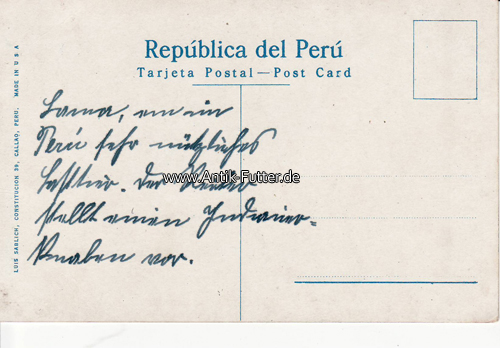 República del Perú
Tarjeta Postal—Post Card
LUIS SABLICH, CONSTITUCION 39, CALLAO, PERU. MADE IN U S A
Lama, ein im
Perú sehr nützliches
Lasttier. Der Reiter
stellt einen Indianer-
Knaben vor.
www.Antik-Futter.de